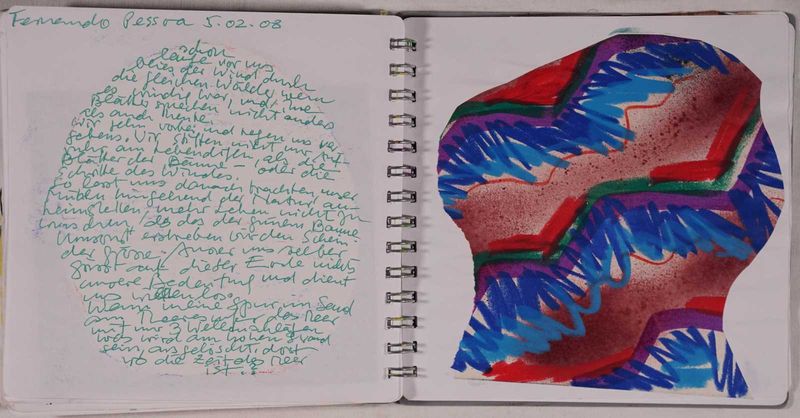 Fernando Pessoa 5.02.08
schon
lange vor uns
blies der Wind durch
die gleichen Wälder, wenn
es windig war, und die
Blätter sprachen nicht anders
als auch heute
wir gehn vorbei und regen uns ver
gebens. Wir stiften nicht mehr Auf
ruhr am Lebendigen, als die
Blätter der Bäume oder die
Schritte des Windes.
So lasst uns danach trachten unser
Mühen hingebend der Natur an
heimstellen mehr Leben nicht zu
wünschen, als das der grünen Bäume
Umsonst erstreben wir den Schein
der Grösse. Ausser uns selber
grüsst auf dieser Erde nichts
unsere Bedeutung und dient
uns willenlos.
Wenn meine Spur im Sand
am Meeres das Meer
mit nur 3 Wellenschlägen
was wird am hohen Strand
sein, ausgelöscht dort
wo die Zeit das Meer
ist..